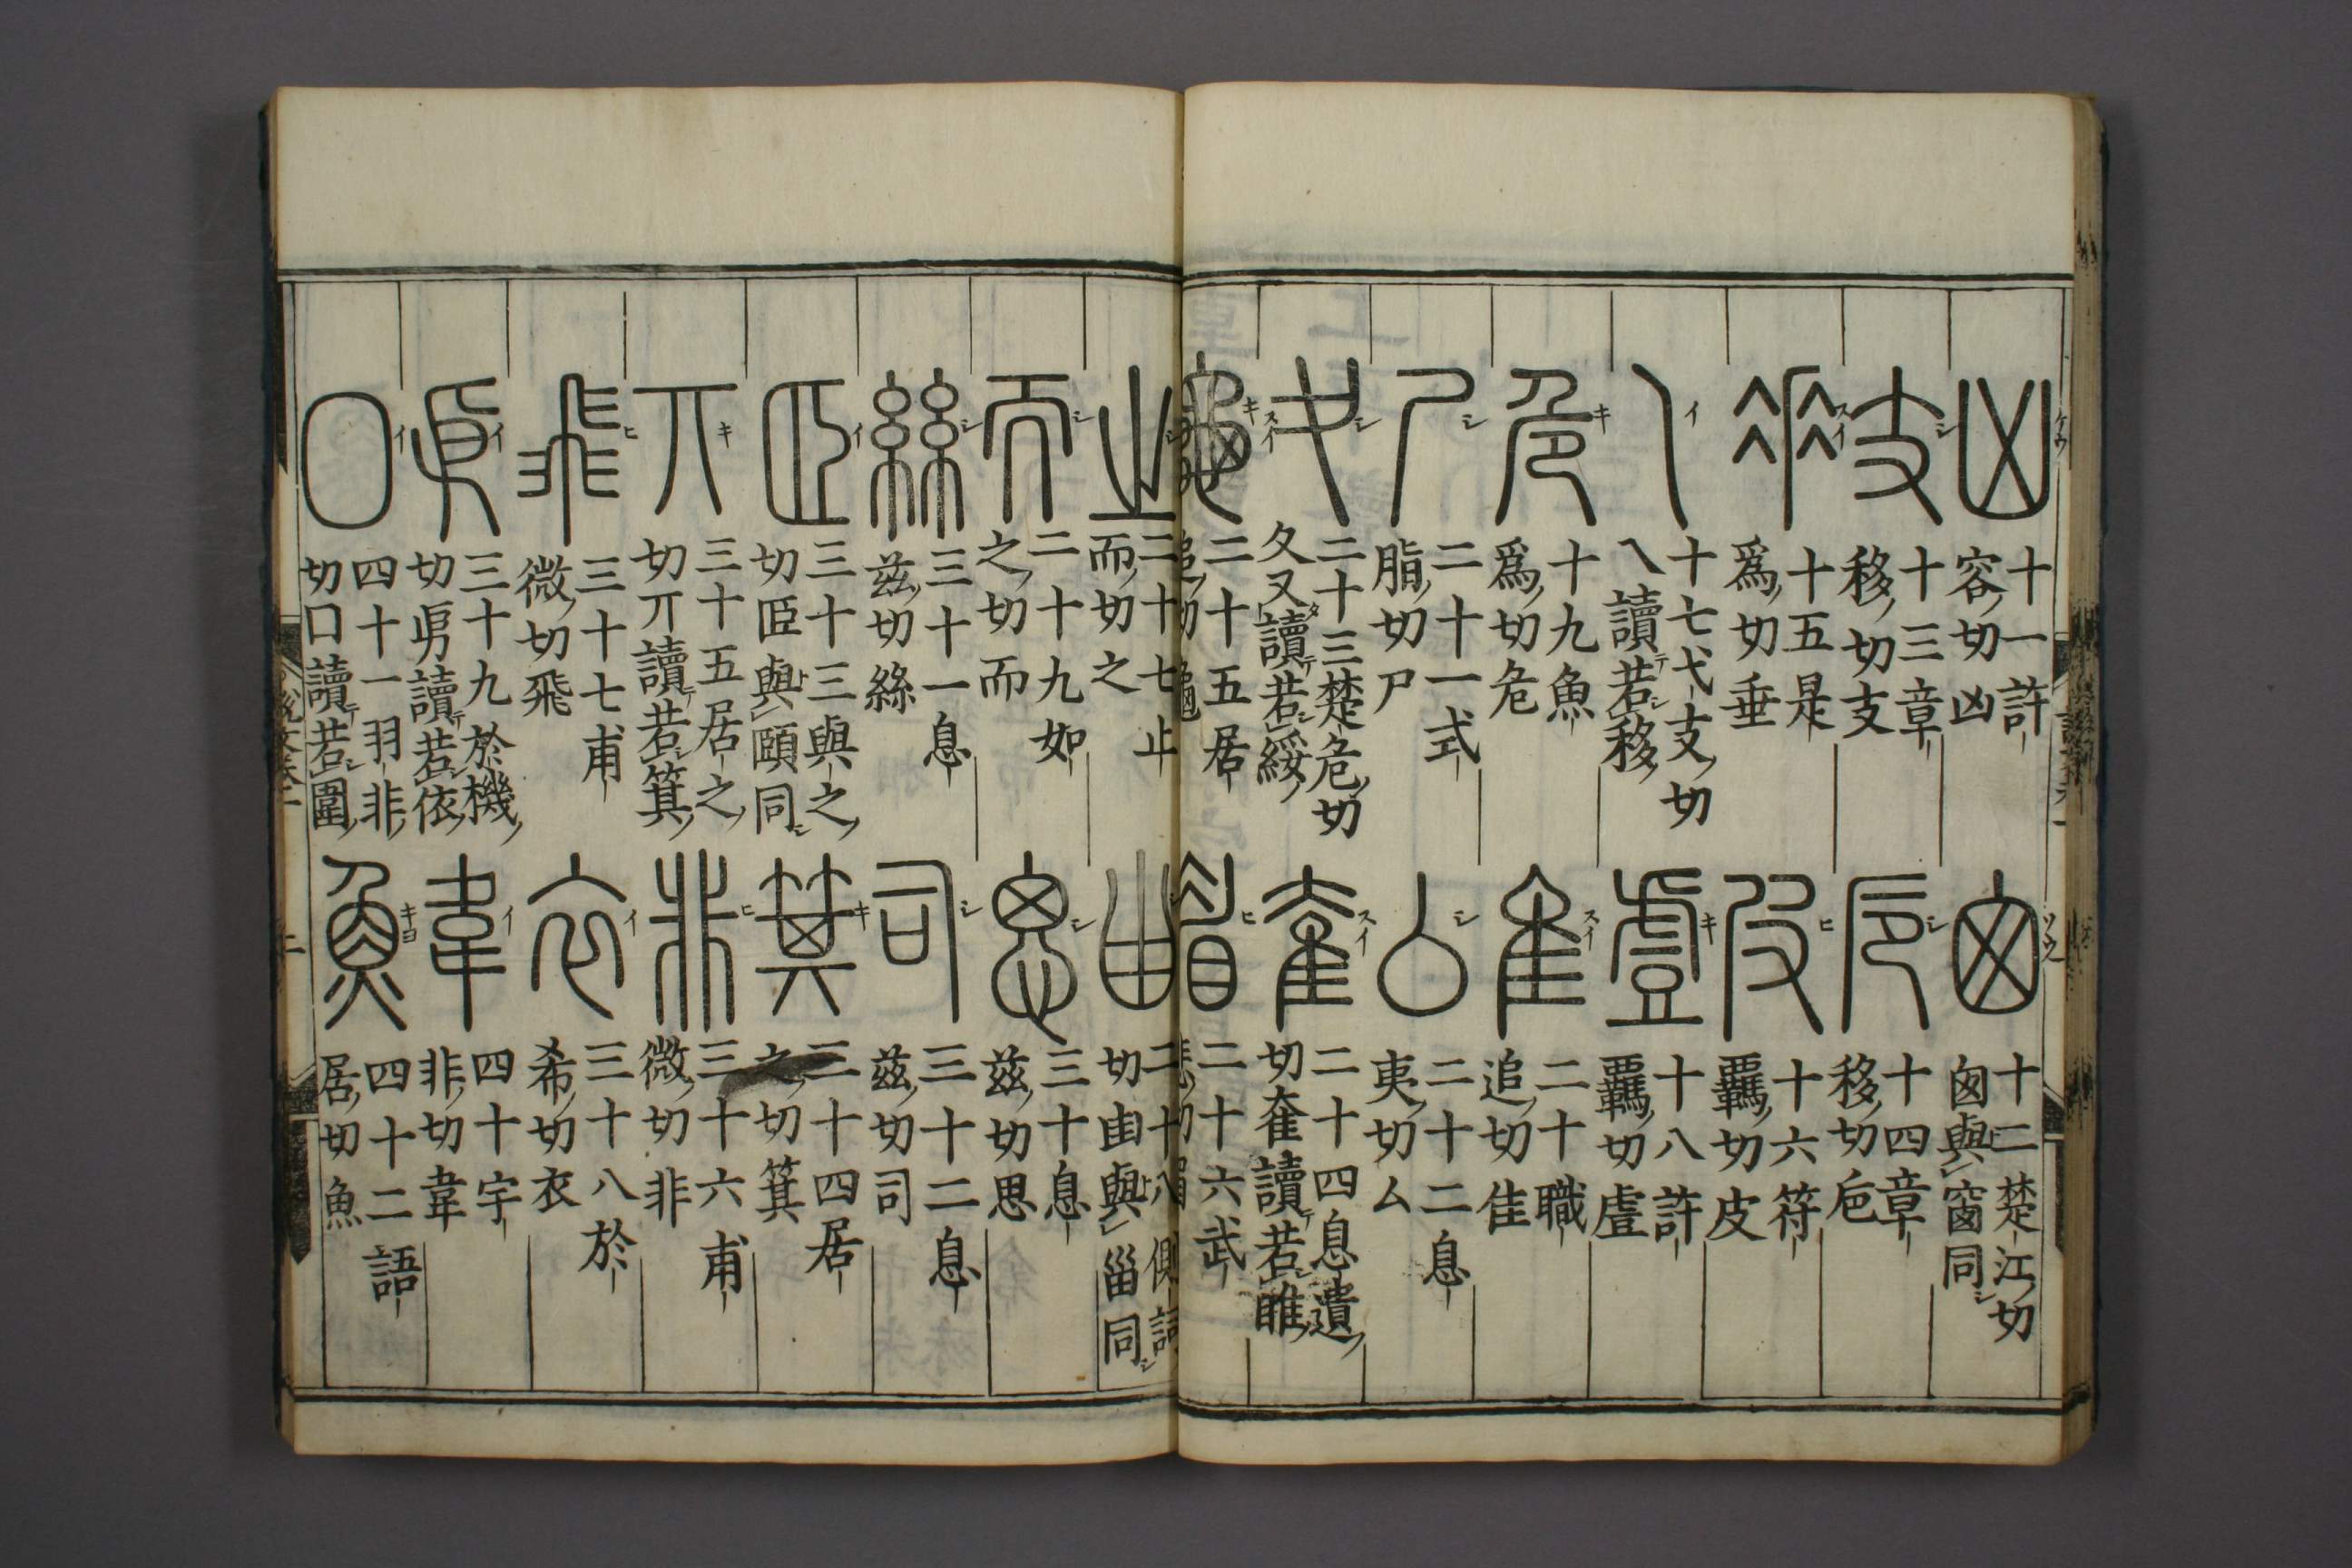 十一許容切凶
十二楚江切囪與窗同
十三章移切支
十四章移切卮
十五是爲切垂
十六符羈切皮
十七弋支切乀讀若移
十八許羈切虛
十九魚爲切危
二十職追切隹
二十一式脂切尸
二十二息夷切厶
二十三楚危切夊又讀若綏
二十四息遺切奞讀若睢
二十五居追切龜
二十六武悲切眉
二十七止而切之
二十八側詞切甾與甾同
二十九如之切而
三十息茲切思
三十一息茲切絲
三十二息茲切司
三十三與之切𦣞與頤同
三十四居之切箕
三十五居之切丌讀若箕
三十六甫微切非
三十七甫微切飛
三十八於希切衣
三十九於機切㐆讀若依
四十宇非切韋
四十一羽非切囗讀若圍
四十二語居切魚